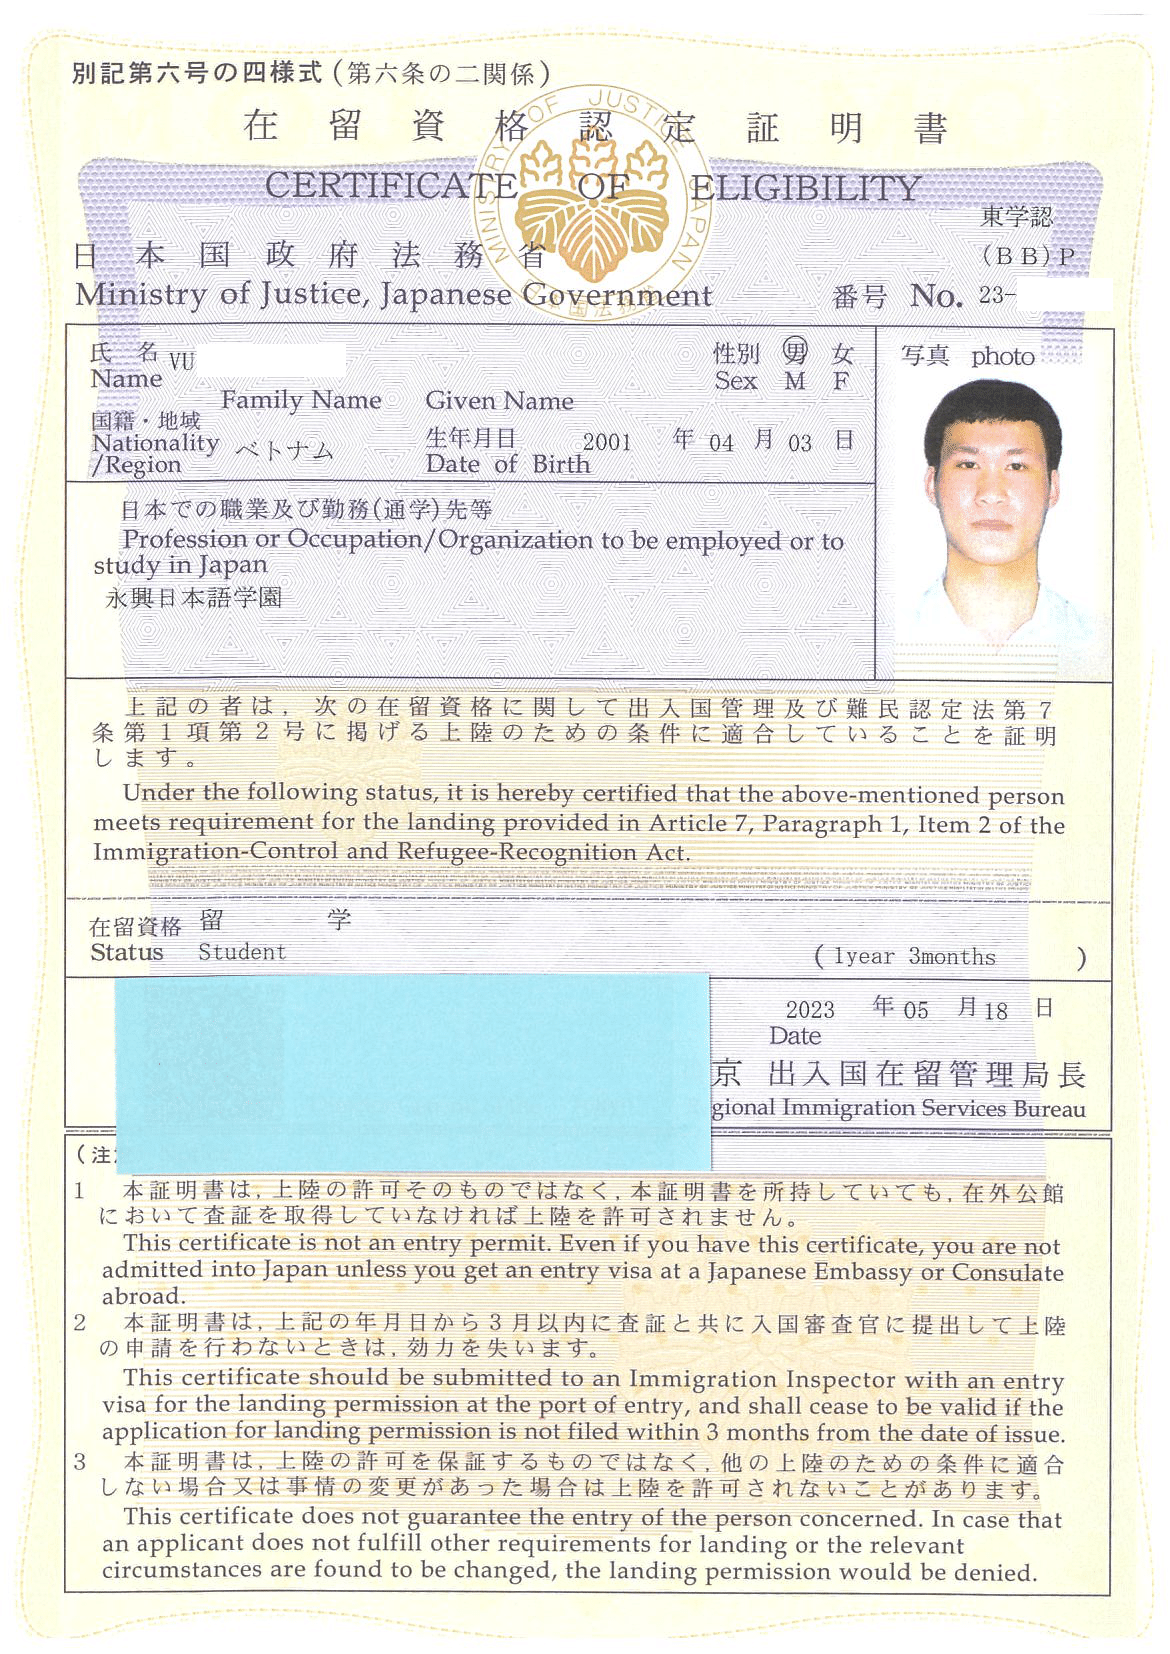 別記第六号の四様式（第六条の二関係）
在留資格認定証明書
CERTIFICATE OF ELIGIBILITY
MINISTRY OF JUSTICE JAPAN
東学認
日本国政府法務省
(ＢＢ)Ｐ
Ministry of Justice, Japanese Government
番号 No. 23-
氏 名 VU
Name
性別 男 女
Sex M F
写真 photo
Family Name Given Name
国籍・地域
Nationality
/Region
ベトナム
生年月日 2001 年 04 月 03 日
Date of Birth
日本での職業及び勤務(通学)先等
Profession or Occupation/Organization to be employed or to
study in Japan
永興日本語学園
上記の者は，次の在留資格に関して出入国管理及び難民認定法第７
条第１項第２号に掲げる上陸のための条件に適合していることを証明
します。
Under the following status, it is hereby certified that the above-mentioned person
meets requirement for the landing provided in Article 7, Paragraph 1, Item 2 of the
Immigration-Control and Refugee-Recognition Act.
在留資格 留 学
Status Student
( 1year 3months )
2023 年 05 月 18 日
Date
京 出入国在留管理局長
gional Immigration Services Bureau
（注
1 本証明書は，上陸の許可そのものではなく，本証明書を所持していても，在外公館
において査証を取得していなければ上陸を許可されません。
This certificate is not an entry permit. Even if you have this certificate, you are not
admitted into Japan unless you get an entry visa at a Japanese Embassy or Consulate
abroad.
2 本証明書は，上記の年月日から３月以内に査証と共に入国審査官に提出して上陸
の申請を行わないときは，効力を失います。
This certificate should be submitted to an Immigration Inspector with an entry
visa for the landing permission at the port of entry, and shall cease to be valid if the
application for landing permission is not filed within 3 months from the date of issue.
3 本証明書は，上陸の許可を保証するものではなく，他の上陸のための条件に適合
しない場合又は事情の変更があった場合は上陸を許可されないことがあります。
This certificate does not guarantee the entry of the person concerned. In case that
an applicant does not fulfill other requirements for landing or the relevant
circumstances are found to be changed, the landing permission would be denied.